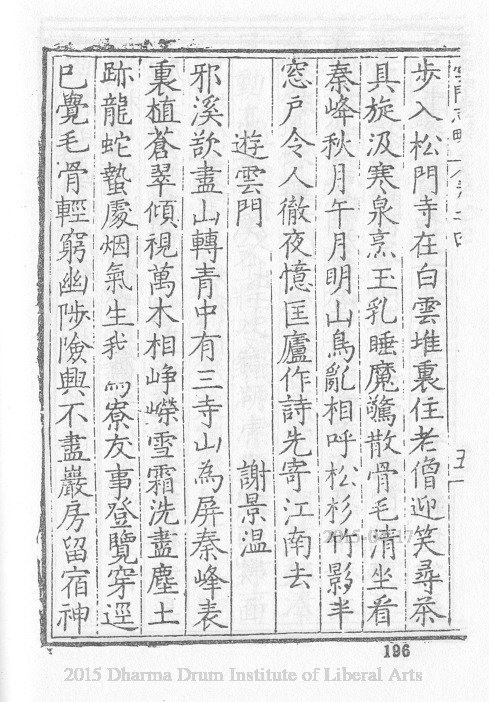 步入松門寺在白雲堆裏住老僧迎笑尋茶
具旋汲寒泉烹玉乳睡魔驚散骨毛清坐看
秦峰秋月午月明山鳥亂相呼松杉竹影半
窓户令人徹夜憶匡廬作詩先寄江南去
遊雲門 謝景溫
邪溪欲盡山轉青中有三寺山為屏秦峰表
裏植蒼翠傾視萬木相崢嶸雪霜洗盡塵土
跡龍蛇蟄處烟氣生我 寮友事登覽穿逕
已覺毛骨輕窮幽陟險興不盡巖房留宿神
196
2015 Dharma Drum Institute of Liberal Arts